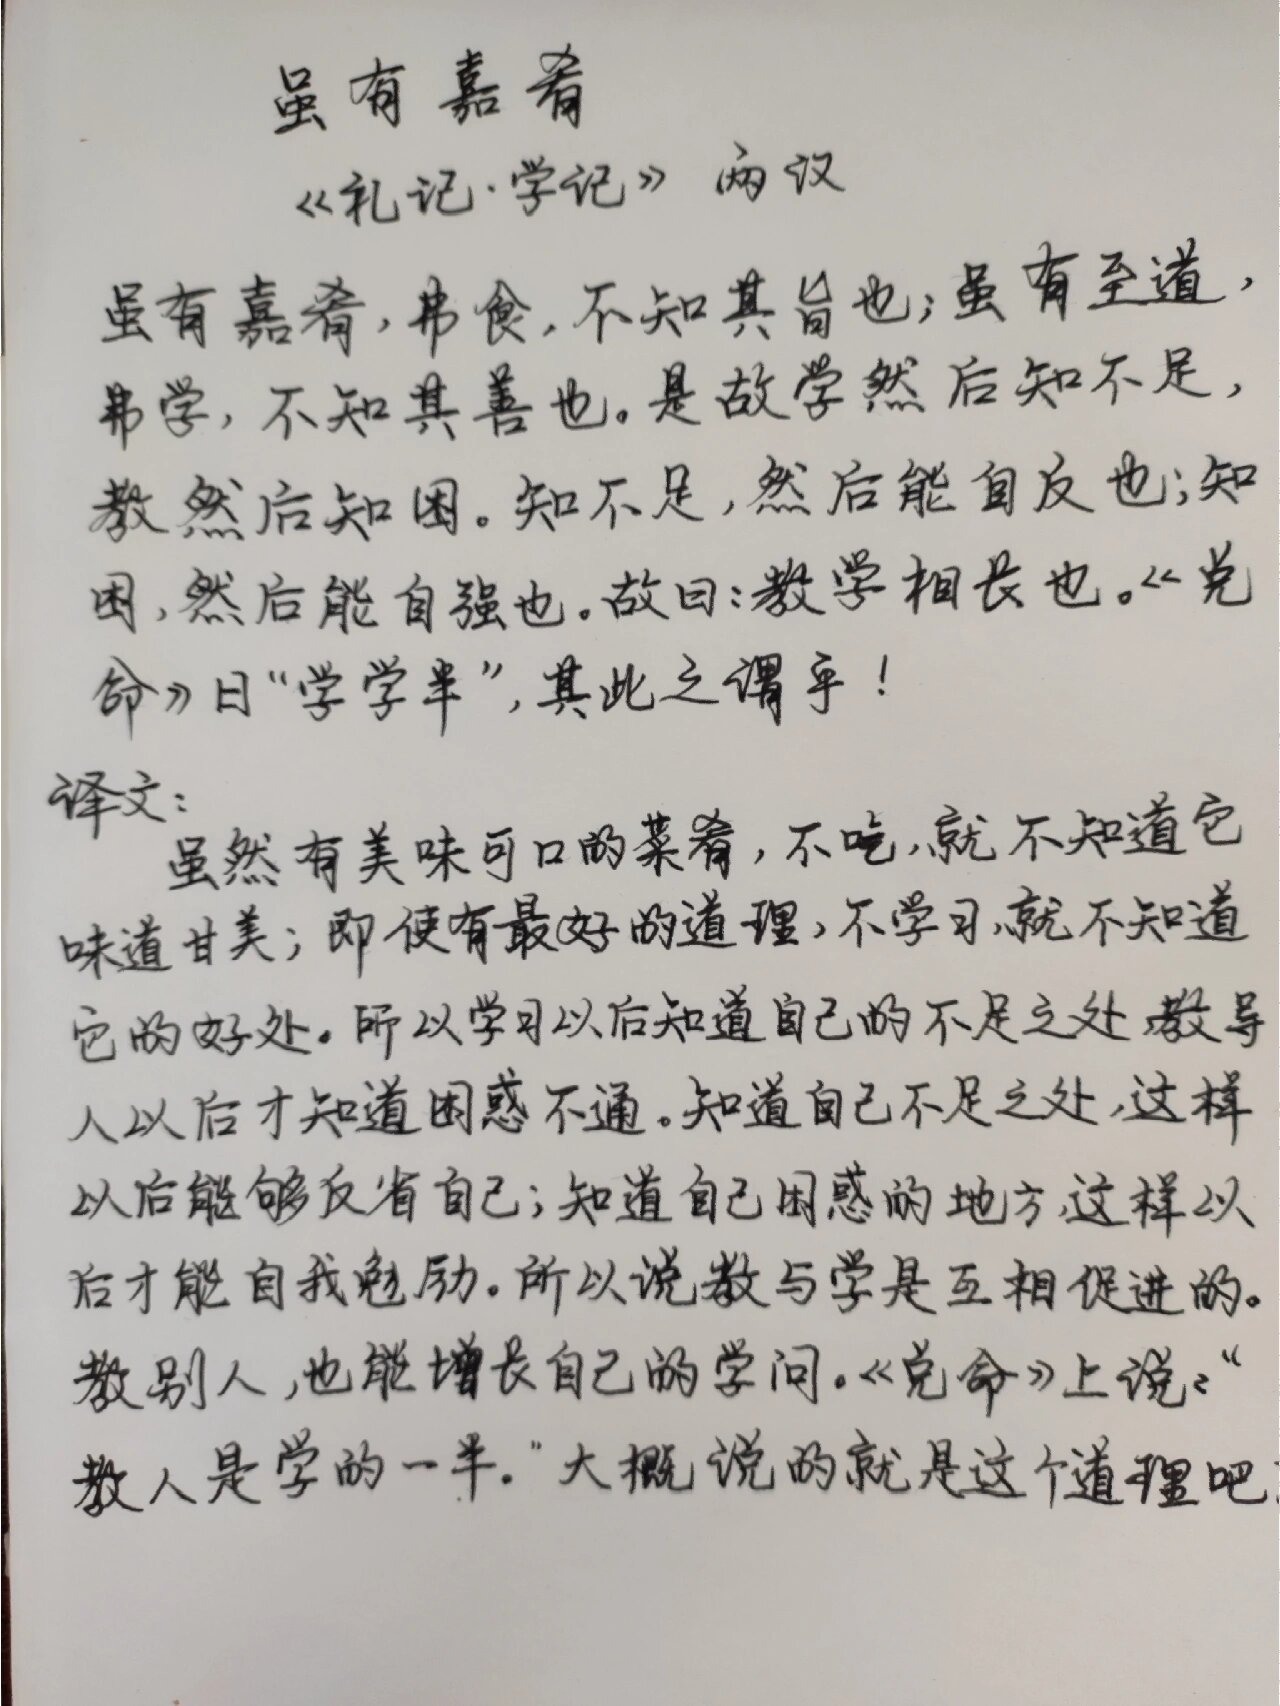 虽有嘉肴
《礼记·学记》 两议
虽有嘉肴，弗食，不知其旨也；虽有至道，
弗学，不知其善也。是故学然后知不足，
教然后知困。知不足，然后能自反也；知
困，然后能自强也。故曰：教学相长也。《兑
命》曰“学学半”，其此之谓乎！
译文：
虽然有美味可口的菜肴，不吃，就不知道它
味道甘美；即使有最好的道理，不学习，就不知道
它的好处。所以学习以后知道自己的不足之处，教导
人以后才知道困惑不通。知道自己不足之处，这样
以后能够反省自己；知道自己困惑的地方，这样以
后才能自我勉励。所以说教与学是互相促进的。
教别人，也能增长自己的学问。《兑命》上说：“
教人是学的一半。”大概说的就是这个道理吧！